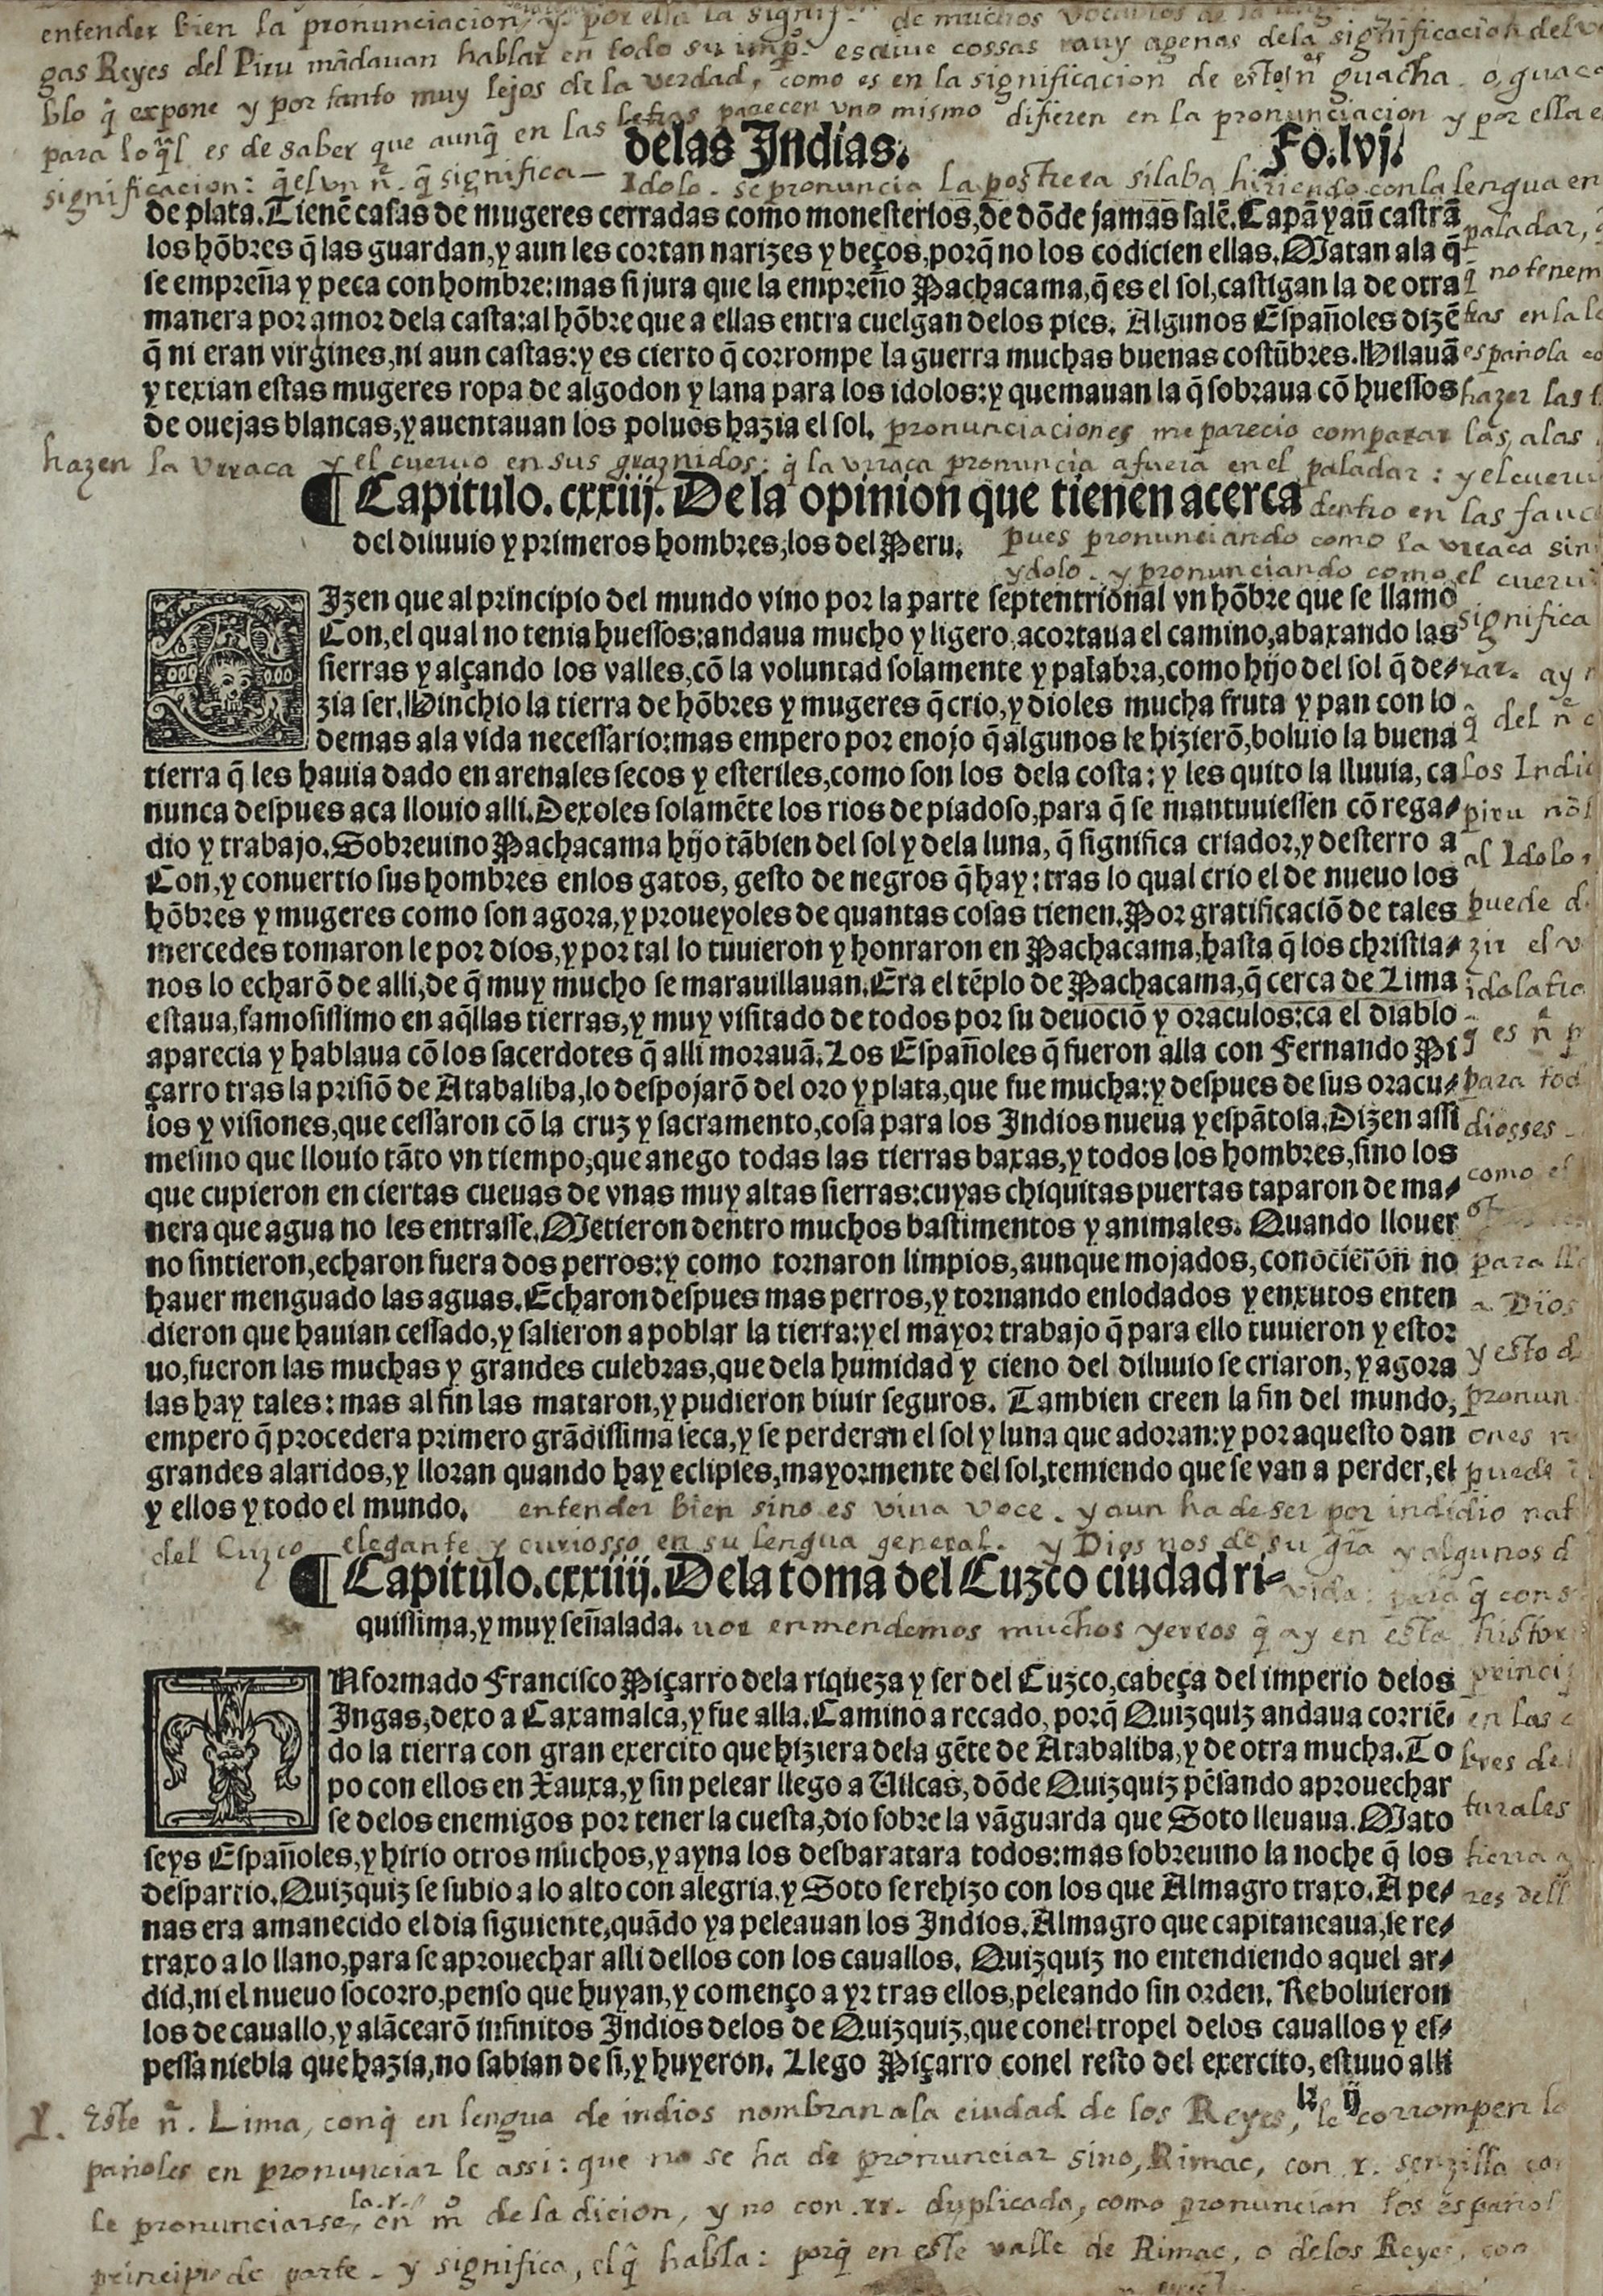 entender bien la pronunciacion, y por ella la signif. de muchos
gas Reyes del Piru mãdauan hablar en todo su imp.º escriue cossas muy agenas dela significacion del
blo q̃ expone y por tanto muy lejos de la verdad, como es en la significacion de este ñ. guacha. o, guaca
para lo q̃l es de saber que aunq̃ en las letras parecen vno mismo difieren en la pronunciacion y por ella
significacion: q̃ el vn ñ. q̃ significa Idolo. se pronuncia la postrera silaba hiriendo con la lengua en
delas Indias. Fo.lvj.
de plata. Tienẽ casas de mugeres cerradas como monesterios, de dõde jamas salẽ. Capã y aũ castrã
los hõbres q̃ las guardan, y aun les cortan narizes y beços, porq̃ no los codicien ellas. Matan ala q̃
se empreña y peca con hombre: mas si jura que la empreño Pachacama, q̃ es el sol, castigan la de otra
manera por amor dela casta: al hõbre que a ellas entra cuelgan delos pies. Algunos Españoles dizẽ
q̃ ni eran virgines, ni aun castas: y es cierto q̃ corrompe la guerra muchas buenas costũbres. Hilauã
y texian estas mugeres ropa de algodon y lana para los idolos: y quemauan la q̃ sobraua cõ huessos
de ouejas blancas, y auentauan los poluos hazia el sol.
paladar,
q̃ no tenem
tras en la
española
hazer las
pronunciaciones me parecio comparar las, alas
hazen la vrraca y el cueruo en sus graznidos: q̃ la vrraca pronuncia afuera en el paladar: y el cueru
¶ Capitulo. cxxiij. De la opinion que tienen acerca
del diluuio y primeros hombres, los del Peru.
dentro en las fauc
pues pronunciando como la vrraca
ydolo. y pronunciando como el cueru
significa
DIzen que al principio del mundo vino por la parte septentrional vn hõbre que se llamo
Con, el qual no tenia huessos: andaua mucho y ligero, acortaua el camino, abaxando las
sierras y alçando los valles, cõ la voluntad solamente y palabra, como hijo del sol q̃ de-
zia ser. Hinchio la tierra de hõbres y mugeres q̃ crio, y dioles mucha fruta y pan con lo
demas ala vida necessario: mas empero por enojo q̃ algunos le hizierõ, boluio la buena
tierra q̃ les hauia dado en arenales secos y esteriles, como son los dela costa: y les quito la lluuia, ca
nunca despues aca llouio alli. Dexoles solamẽte los rios de piadoso, para q̃ se mantuuiessen cõ rega-
dio y trabajo. Sobreuino Pachacama hijo tãbien del sol y dela luna, q̃ significa criador, y desterro a
Con, y conuertio sus hombres enlos gatos, gesto de negros q̃ hay: tras lo qual crio el de nueuo los
hõbres y mugeres como son agora, y proueyoles de quantas cosas tienen. Por gratificaciõ de tales
mercedes tomaron le por dios, y por tal lo tuuieron y honraron en Pachacama, hasta q̃ los christia-
nos lo echarõ de alli, de q̃ muy mucho se marauillauan. Era el tẽplo de Pachacama, q̃ cerca de Lima
estaua, famosissimo en aq̃llas tierras, y muy visitado de todos por su deuociõ y oraculos: ca el diablo
aparecia y hablaua cõ los sacerdotes q̃ alli morauã. Los Españoles q̃ fueron alla con Fernando Pi
çarro tras la prisiõ de Atabaliba, lo despojarõ del oro y plata, que fue mucha: y despues de sus oracu-
los y visiones, que cessaron cõ la cruz y sacramento, cosa para los Indios nueua y espãtosa. Dizen assi
mesmo que llouio tãto vn tiempo, que anego todas las tierras baxas, y todos los hombres, sino los
que cupieron en ciertas cueuas de vnas muy altas sierras: cuyas chiquitas puertas taparon de ma-
nera que agua no les entrasse. Metieron dentro muchos bastimentos y animales. Quando llouer
no sintieron, echaron fuera dos perros: y como tornaron limpios, aunque mojados, conocieron no
hauer menguado las aguas. Echaron despues mas perros, y tornando enlodados y enxutos enten
dieron que hauian cessado, y salieron a poblar la tierra: y el mayor trabajo q̃ para ello tuuieron y estor
uo, fueron las muchas y grandes culebras, que dela humidad y cieno del diluuio se criaron, y agora
las hay tales: mas al fin las mataron, y pudieron biuir seguros. Tambien creen la fin del mundo,
empero q̃ procedera primero grãdissima seca, y se perderan el sol y luna que adoran: y por aquesto dan
grandes alaridos, y lloran quando hay eclipses, mayormente del sol, temiendo que se van a perder, el
y ellos y todo el mundo.
rar. ay
q̃ del ñ
los Indi
piru
al Idolo,
puede d
zir el v
idolatr
q̃ es ñ p
para tod
diosses
como el
para
a Dios
y esto d
pronun
ones
puede
entender bien sino es viua voce. y aun ha de ser por indidio nat
del Cuzco elegante y curiosso en su lengua general. y Dios nos de su gr̃a y algunos d
¶ Capitulo. cxxiiij. De la toma del Cuzco ciudad ri-
quissima, y muy señalada.
vida: para q̃ cons
uor enmendemos muchos yerros q̃ ay en esta histor
INformado Francisco Piçarro dela riqueza y ser del Cuzco, cabeça del imperio delos
Ingas, dexo a Caxamalca, y fue alla. Camino a recado, porq̃ Quizquiz andaua corriẽ-
do la tierra con gran exercito que hiziera dela gẽte de Atabaliba, y de otra mucha. To
po con ellos en Xauxa, y sin pelear llego a Uilcas, dõde Quizquiz pẽsando aprouechar
se delos enemigos por tener la cuesta, dio sobre la vãguarda que Soto lleuaua. Mato
seys Españoles, y hirio otros muchos, y ayna los desbaratara todos: mas sobreuino la noche q̃ los
despartio. Quizquiz se subio a lo alto con alegria, y Soto se rehizo con los que Almagro traxo. A pe-
nas era amanecido el dia siguiente, quãdo ya peleauan los Indios. Almagro que capitaneaua, se re-
traxo a lo llano, para se aprouechar alli dellos con los cauallos. Quizquiz no entendiendo aquel ar-
did, ni el nueuo socorro, penso que huyan, y començo a yr tras ellos, peleando sin orden. Reboluieron
los de cauallo, y alãcearõ infinitos Indios delos de Quizquiz, que conel tropel delos cauallos y es-
pessa niebla que hazia, no sabian de si, y huyeron. Llego Piçarro conel resto del exercito, estuuo alli
princip
en las
bres de
turales
tierra
res dell
h ij
Este ñ. Lima, conq̃ en lengua de indios nombran ala ciudad de los Reyes, le corrompen lo
pañoles en pronunciar le assi: que no se ha de pronunciar sino, Rimac, con .r. senzilla
le pronunciarse, la .r. en m.º de la dicion, y no con .rr. duplicada, como pronuncian los español
principio de parte. y significa, el q̃ habla: porq̃ en este valle de Rimac, o delos Reyes, con